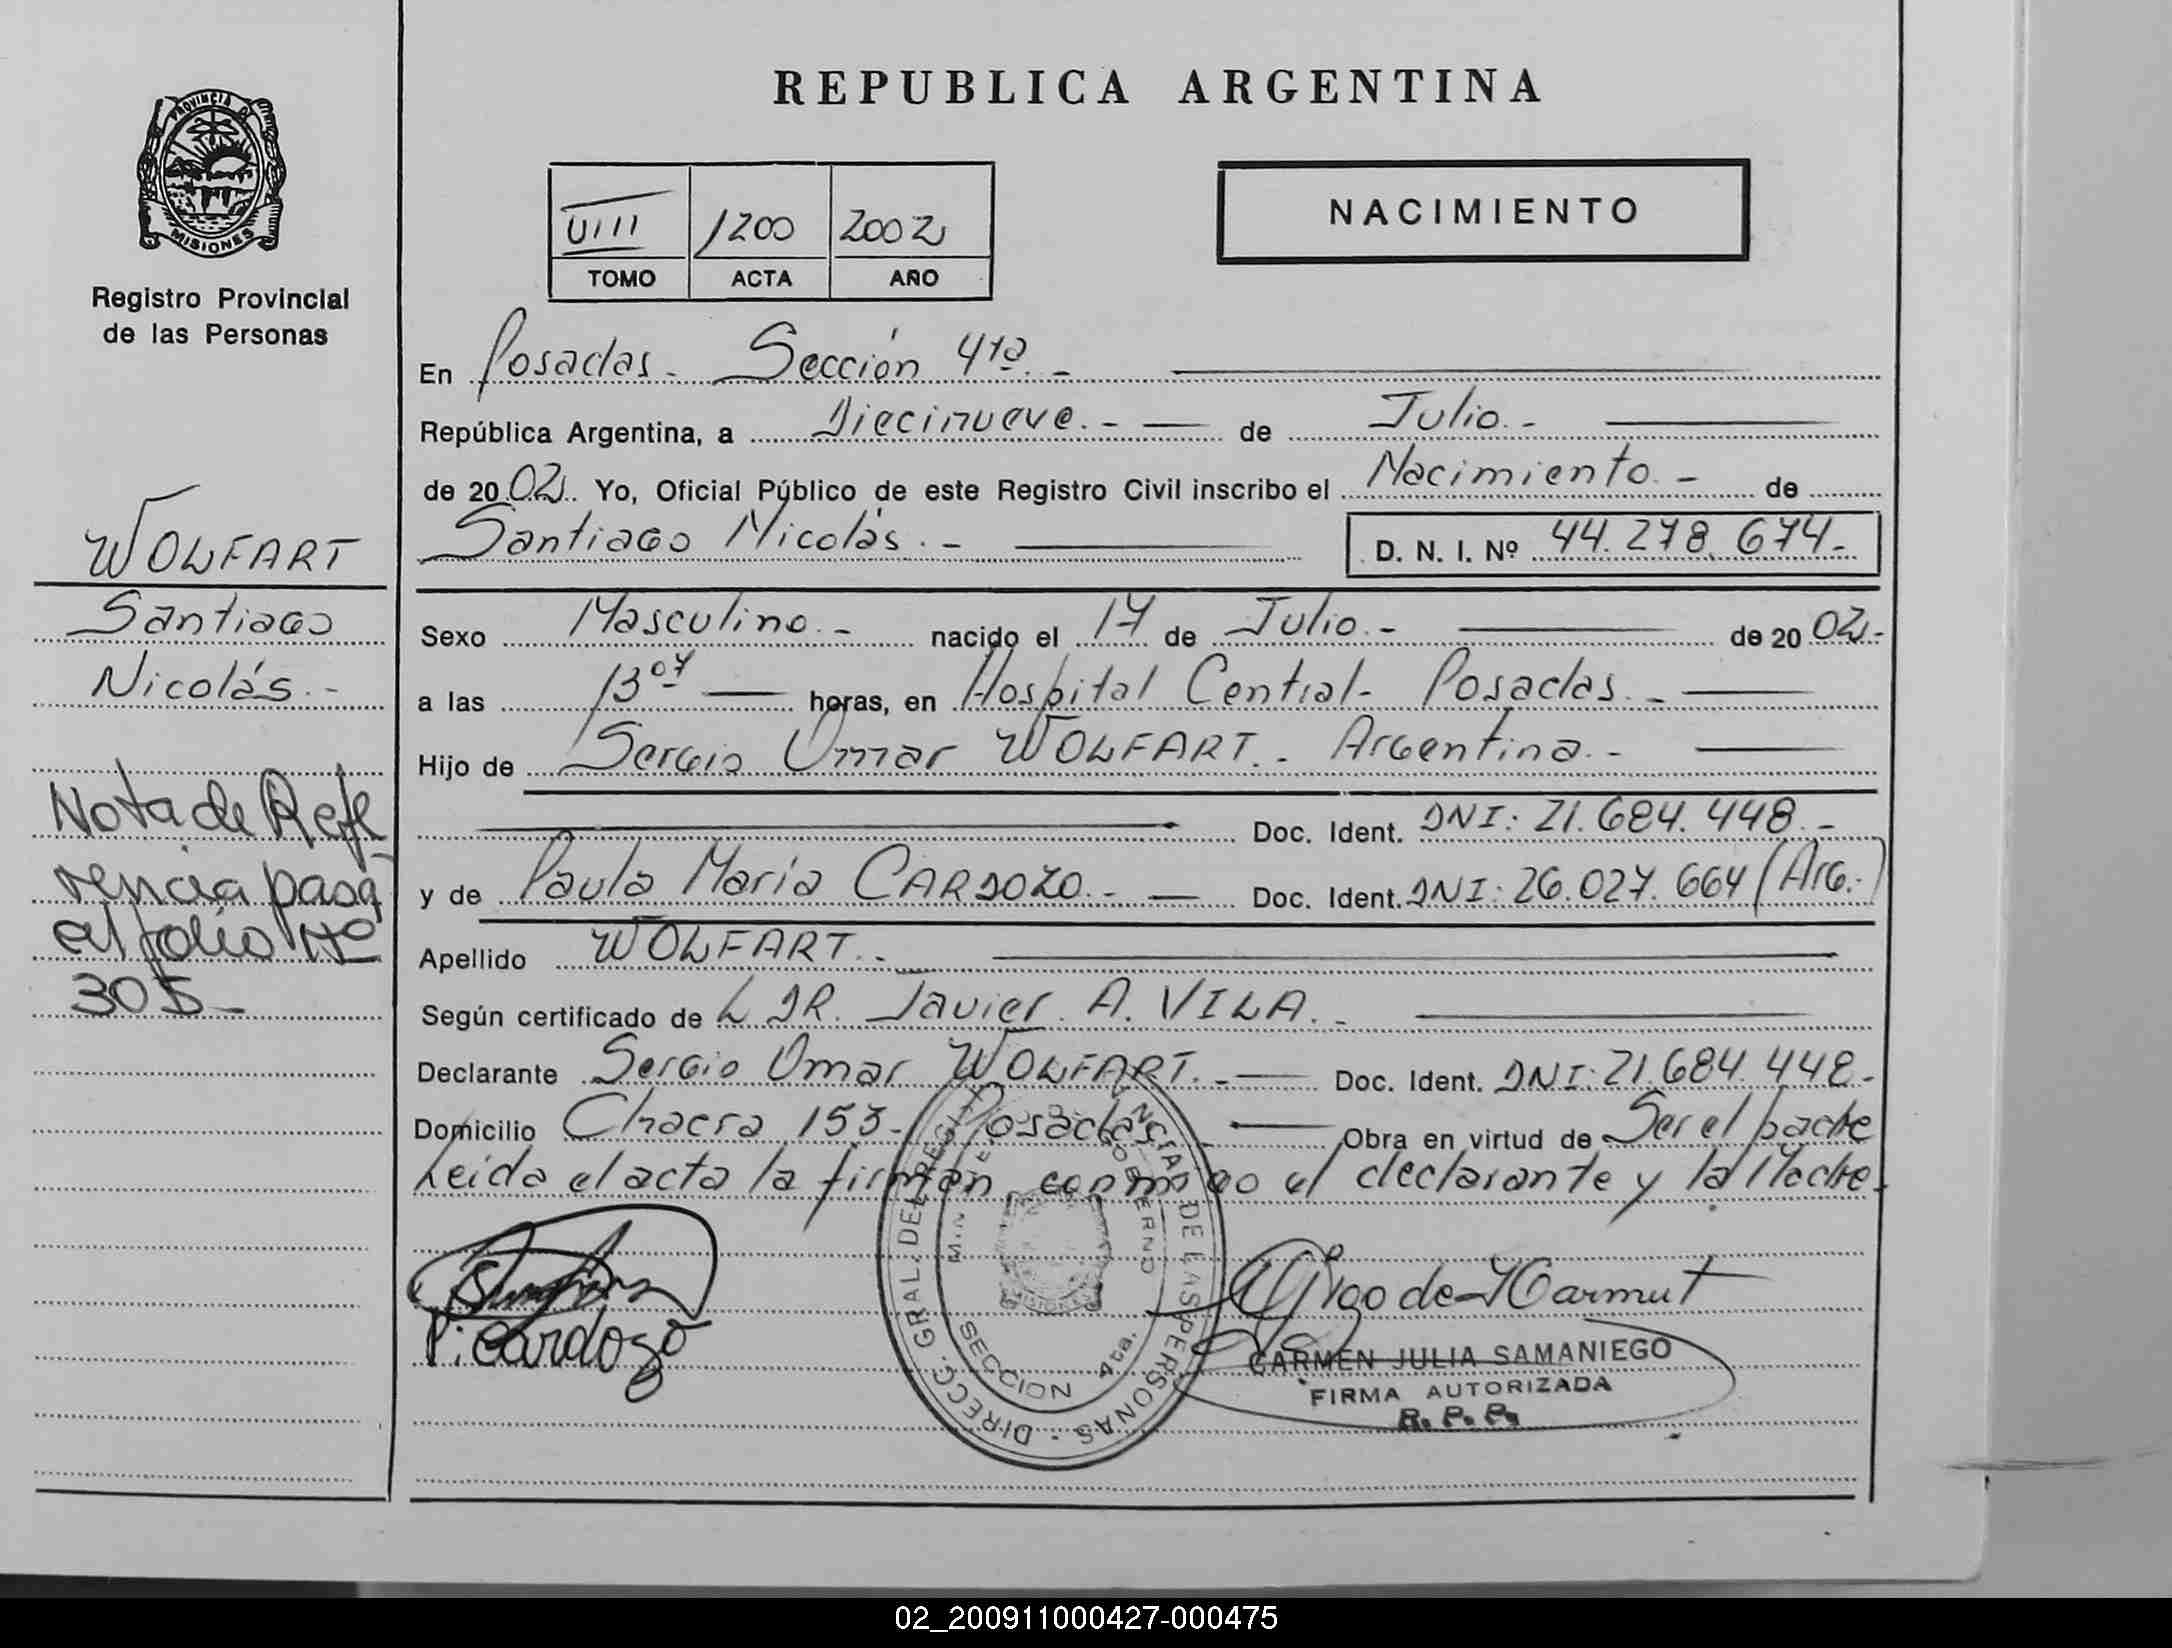 REPUBLICA ARGENTINA
PROVINCIA DE
MISIONES
Registro Provincial
de las Personas
VIII 1200 2002
TOMO ACTA AÑO
NACIMIENTO
En Posadas - Sección 4ta. -
República Argentina, a Diecinueve. - de Julio. -
de 2002. Yo, Oficial Público de este Registro Civil inscribo el Nacimiento. - de
Santiago Nicolás. - D. N. I. Nº 44.278.674-
WOLFART
Santiago
Nicolás. -
Sexo Masculino. - nacido el 17 de Julio. - de 2002.-
a las 13 07 horas, en Hospital Central- Posadas. -
Hijo de Sergio Omar WOLFART. - Argentina. -
Doc. Ident. DNI: 21.684.448. -
y de Paula María CARDOZO. - Doc. Ident. DNI: 26.027.664 (Arg.-)
Nota de Refe
rencia pasa
al folio Nº
305-
Apellido WOLFART. -
Según certificado de L DR. Javier A. VILA. -
Declarante Sergio Omar WOLFART. - Doc. Ident. DNI: 21.684.448-
Domicilio Chacra 153- Posadas. - Obra en virtud de Ser el padre
Leida el acta la firman conmigo el declarante y la Madre.
P. Cardozo
DIRECC. GRAL. DEL REGIST. PROVINCIAL DE LAS PERSONAS
GOBIERNO
MISIONES
SECCION 4ta.
CARMEN JULIA SAMANIEGO
FIRMA AUTORIZADA
R. P. P.
02_200911000427-000475